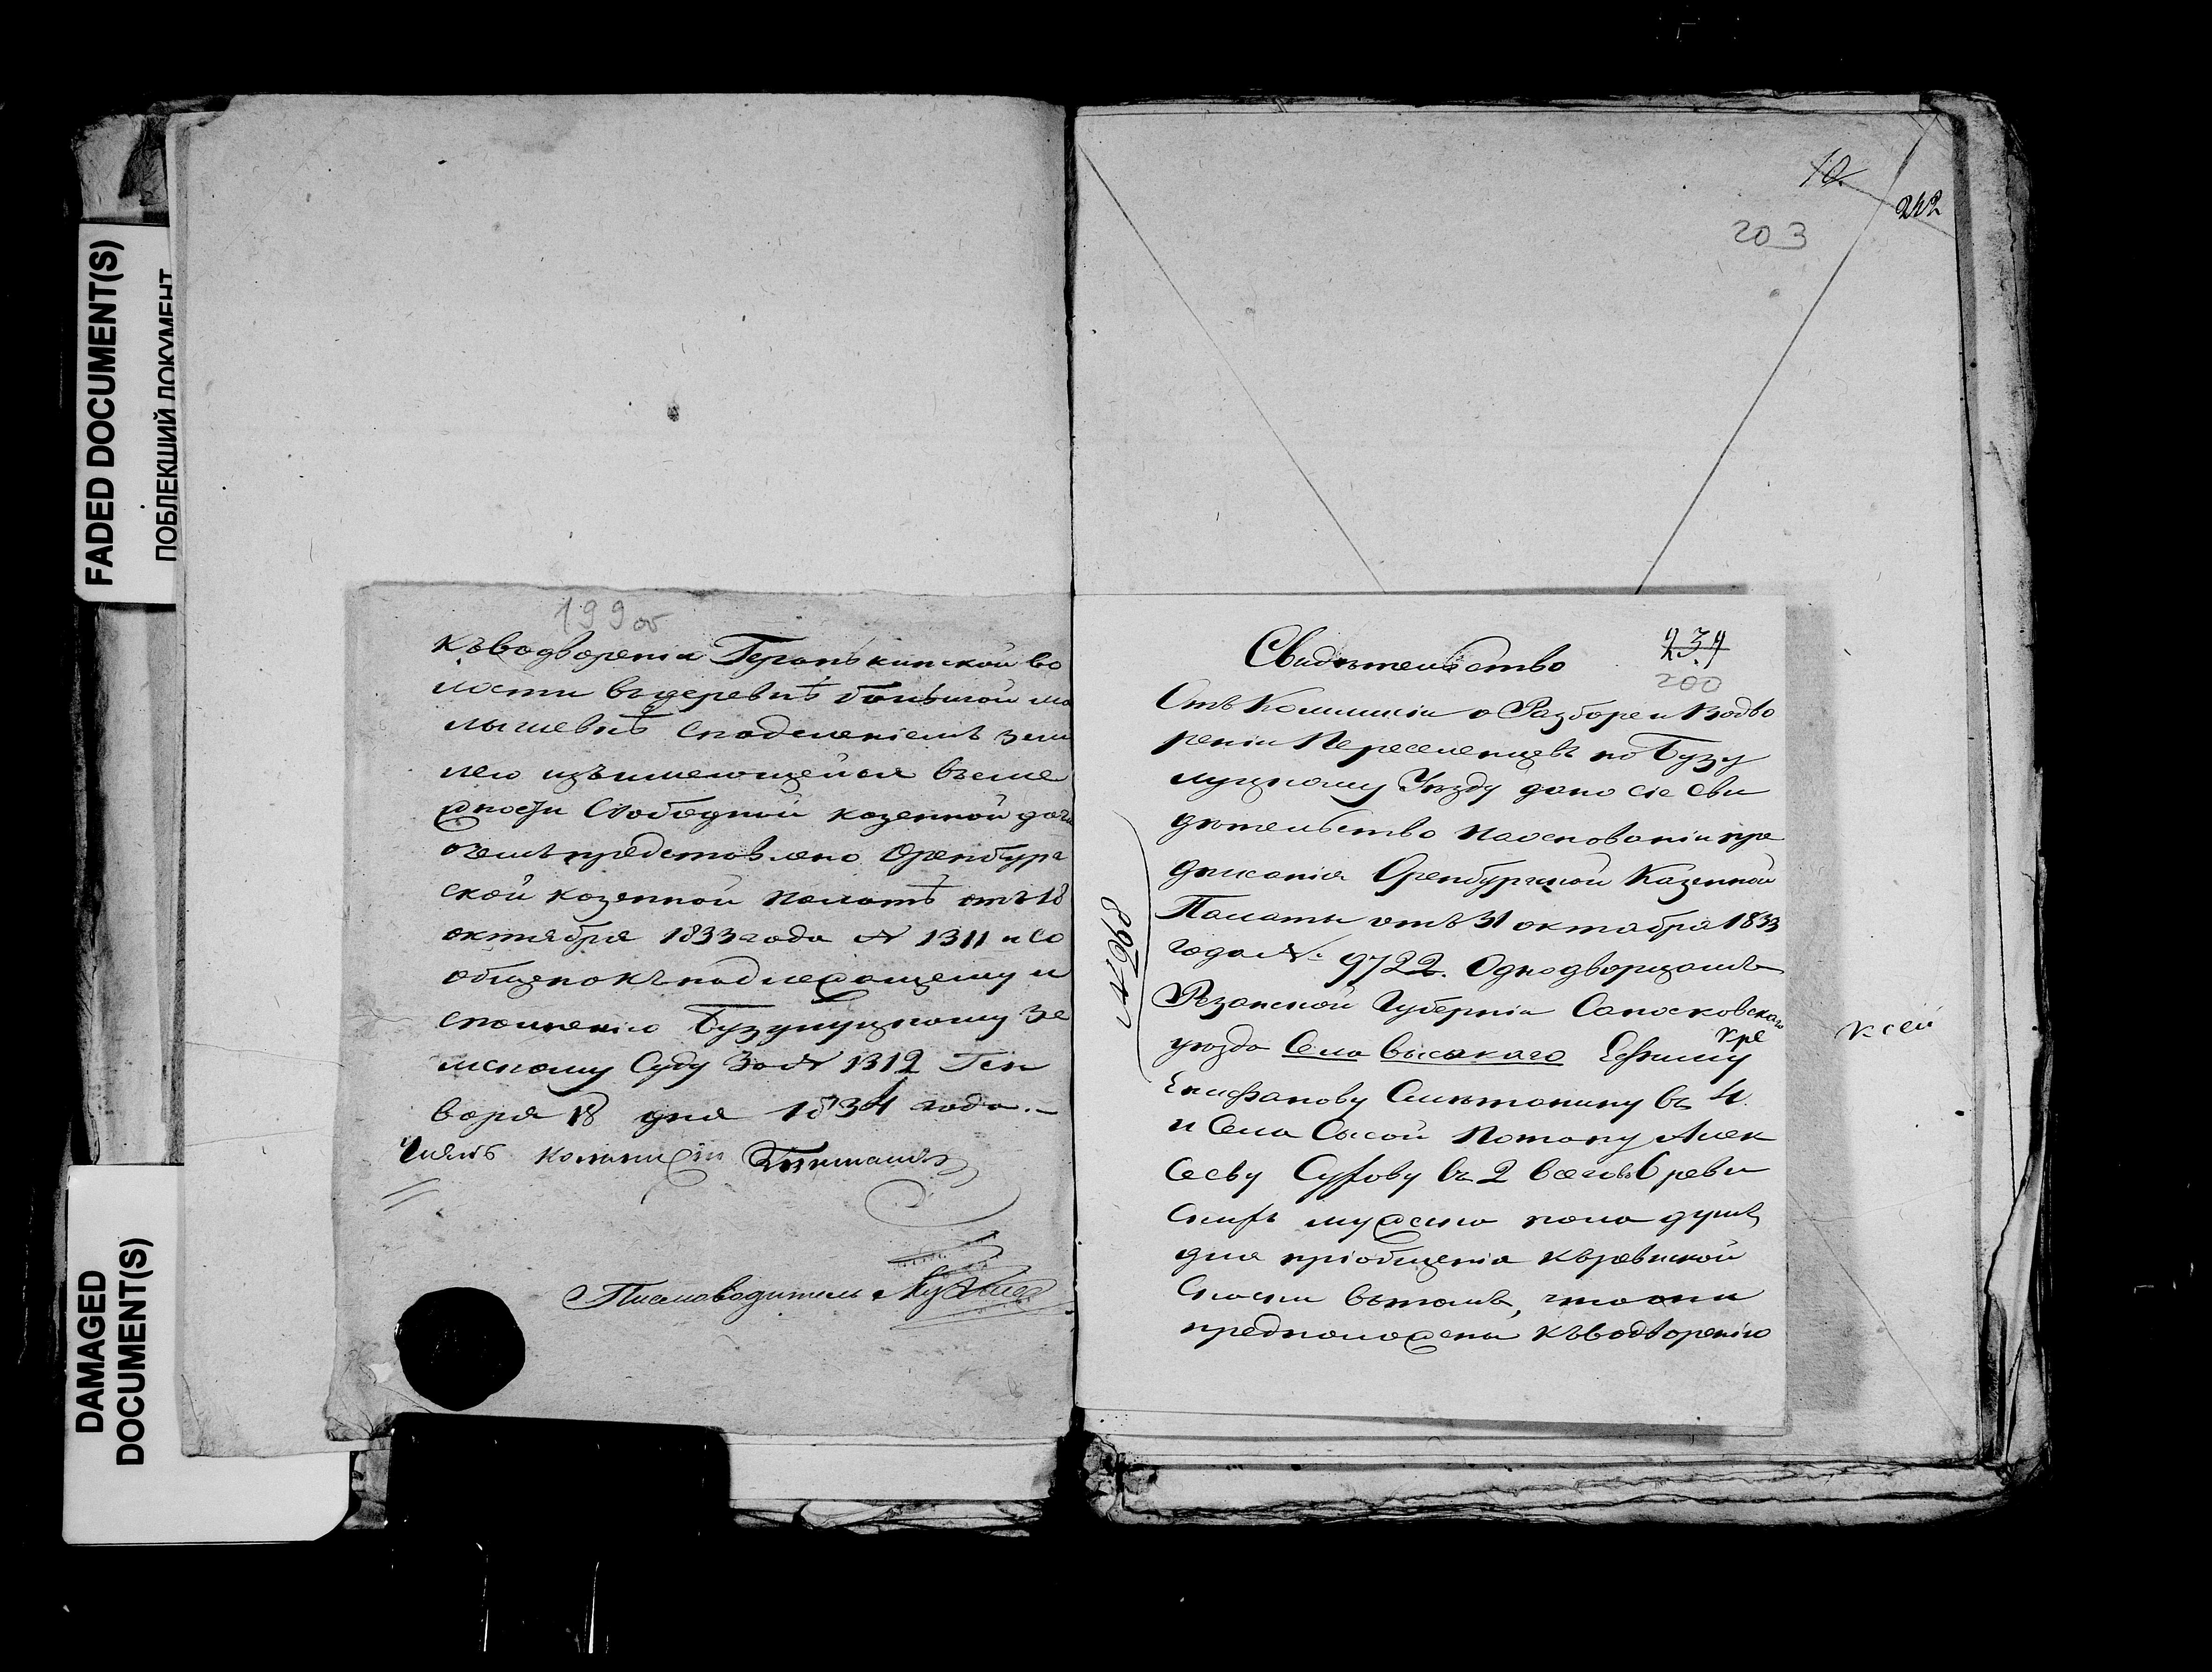 FADED DOCUMENT(S)
ПОБЛЕКШИЙ ДОКУМЕНТ
DAMAGED
DOCUMENT(S)
199 об
къ водворенія Гуранькинской во
лости въ деревнѣ большой ма
лышевнѣ снаделеніемъ земл
лею изъ имеющейся въсме
жности Свободной казенной дачи
очемъ представлено Оренбург
ской казенной палатѣ отъ 18
октября 1833 года № 1311 и со
общено къ надлежащему и
сполненію Бузулуцкому Зе
мскому Суду За № 1312 Ген
варя 18 дня 1834 года.–
Членъ комиссіи
Писмоводитель
10.
242
203
Свидѣтельство
239
200
Отъ Коммисіи о Разборе и Водво
реніи Переселенцевъ по Бузу
луцкому Уѣзду дано сіе Сви
дѣтельство наоснованіи пре
дписанія Оренбургской Казенной
Палаты отъ 31 октября 1833
года № 9722. Однодворцамъ
Резанской Губерніи Сапосковскаго
уѣзда Села высокаго Ефиму
Кре
Епифанову Сметанину въ 4.
и Села Сысой Потапу Алек
сееву Суркову въ 2 всего 6 реви
скихъ мужска пола душъ
для пріобщенія къ ревиской
Скаски вътомъ, что они
предположены къ водворенію
№ 4698
к сей